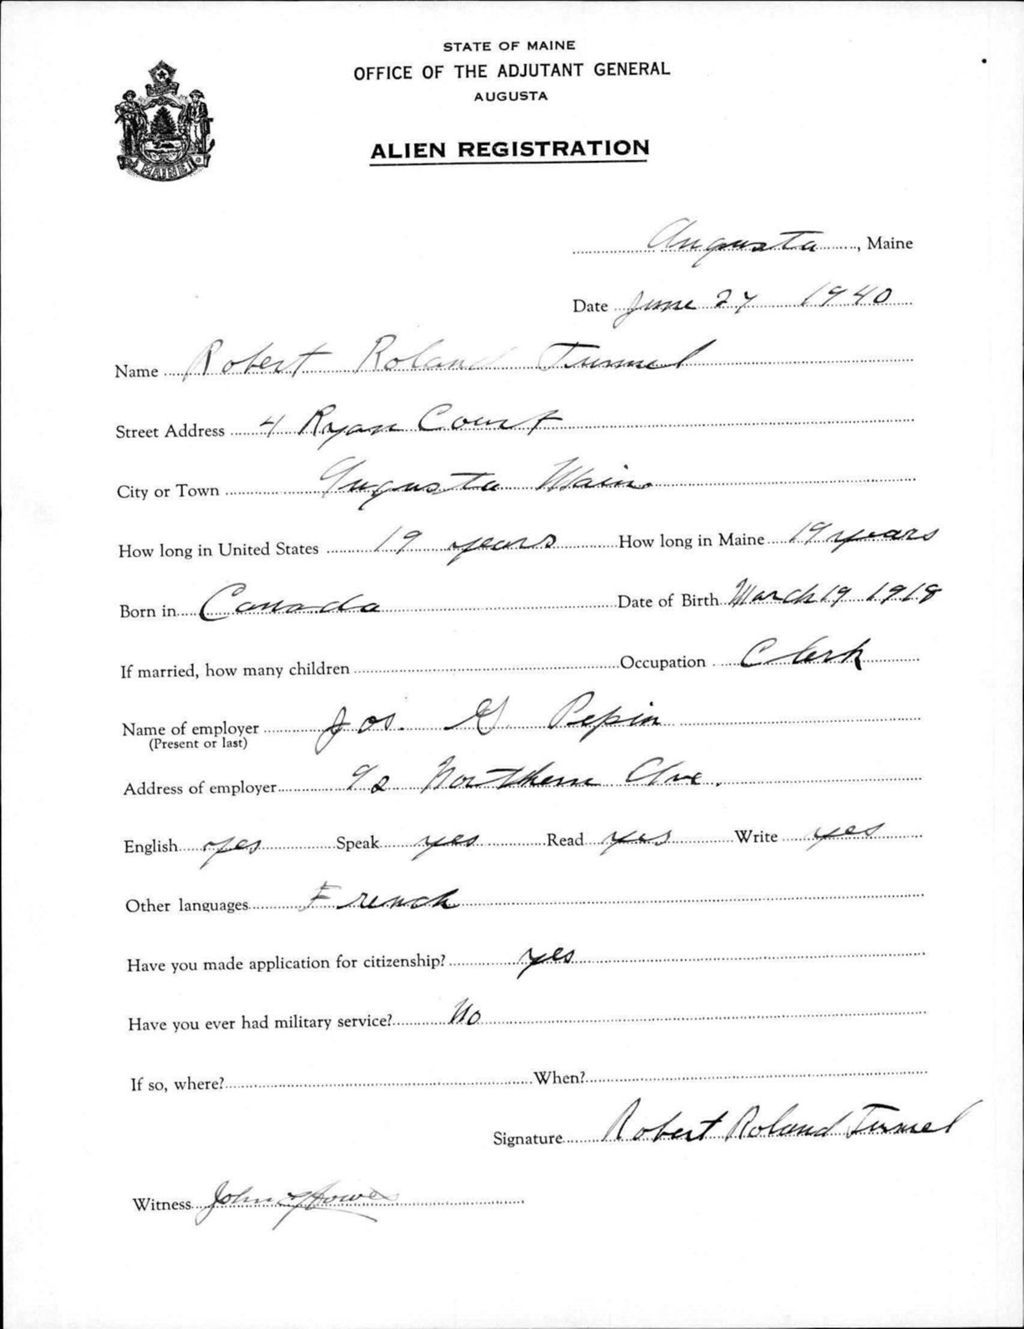 STATE OF MAINE
OFFICE OF THE ADJUTANT GENERAL
AUGUSTA
ALIEN REGISTRATION
MAINE
Augusta, Maine
Date June 27 1940
Name Robert Roland
Street Address 4 Ryan Court
City or Town Augusta Maine
How long in United States 19 years How long in Maine 19 years
Born in Canada Date of Birth March 19 1918
If married, how many children Occupation Clerk
Name of employer Jos. G Pepin
(Present or last)
Address of employer 92 Northern Ave.
English yes Speak yes Read yes Write yes
Other languages French
Have you made application for citizenship? yes
Have you ever had military service? No
If so, where? When?
Signature Robert Roland
Witness John Howe